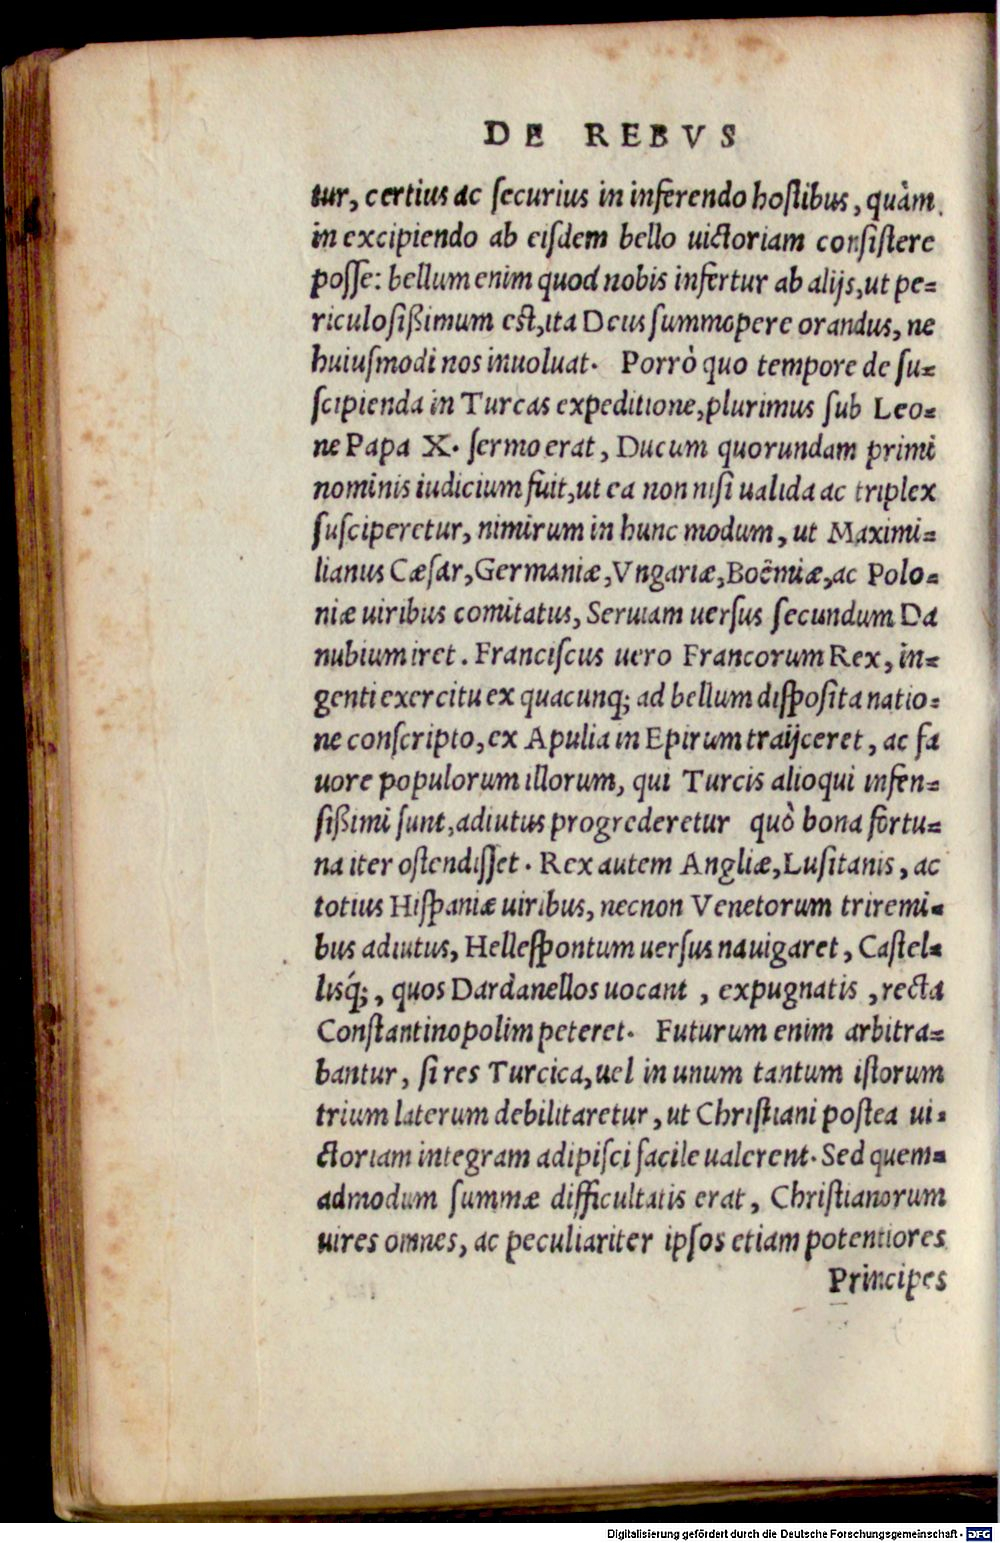 DE REBVS
tur, certius ac ſecurius in inferendo hoſtibus, quàm
in excipiendo ab eiſdem bello uictoriam conſiſtere
poſſe: bellum enim quod nobis infertur ab alijs, ut pe=
riculoſiſßimum eſt, ita Deus ſummopere orandus, ne
huiuſmodi nos inuoluat. Porrò quo tempore de ſu=
ſcipienda in Turcas expeditione, plurimus ſub Leo=
ne Papa X. ſermo erat, Ducum quorundam primi
nominis iudicium fuit, ut ea non niſi ualida ac triplex
ſuſciperetur, nimirum in hunc modum, ut Maximi=
lianus Cæſar, Germaniæ, Vngariæ, Boëmiæ, ac Polo=
niæ uiribus comitatus, Seruiam uerſus ſecundum Da
nubium iret. Franciſcus uero Francorum Rex, in=
genti exercitu ex quacunq; ad bellum diſpoſita natio=
ne conſcripto, ex Apulia in Epirum traijceret, ac fa
uore populorum illorum, qui Turcis alioqui infen=
ſißimi ſunt, adiutus progrederetur quò bona fortu=
na iter oſtendiſſet. Rex autem Angliæ, Luſitanis, ac
totius Hiſpaniæ uiribus, necnon Venetorum triremi=
bus adiutus, Helleſpontum uerſus nauigaret, Caſtel=
lisq́;, quos Dardanellos uocant, expugnatis, recta
Conſtantinopolim peteret. Futurum enim arbitra=
bantur, ſi res Turcica, uel in unum tantum iſtorum
trium laterum debilitaretur, ut Chriſtiani poſtea ui=
ctoriam integram adipiſci facile ualerent. Sed quem=
admodum ſummæ difficultatis erat, Chriſtianorum
uires omnes, ac peculiariter ipſos etiam potentiores
Principes
Digitalisierung gefördert durch die Deutsche Forschungsgemeinschaft - DFG